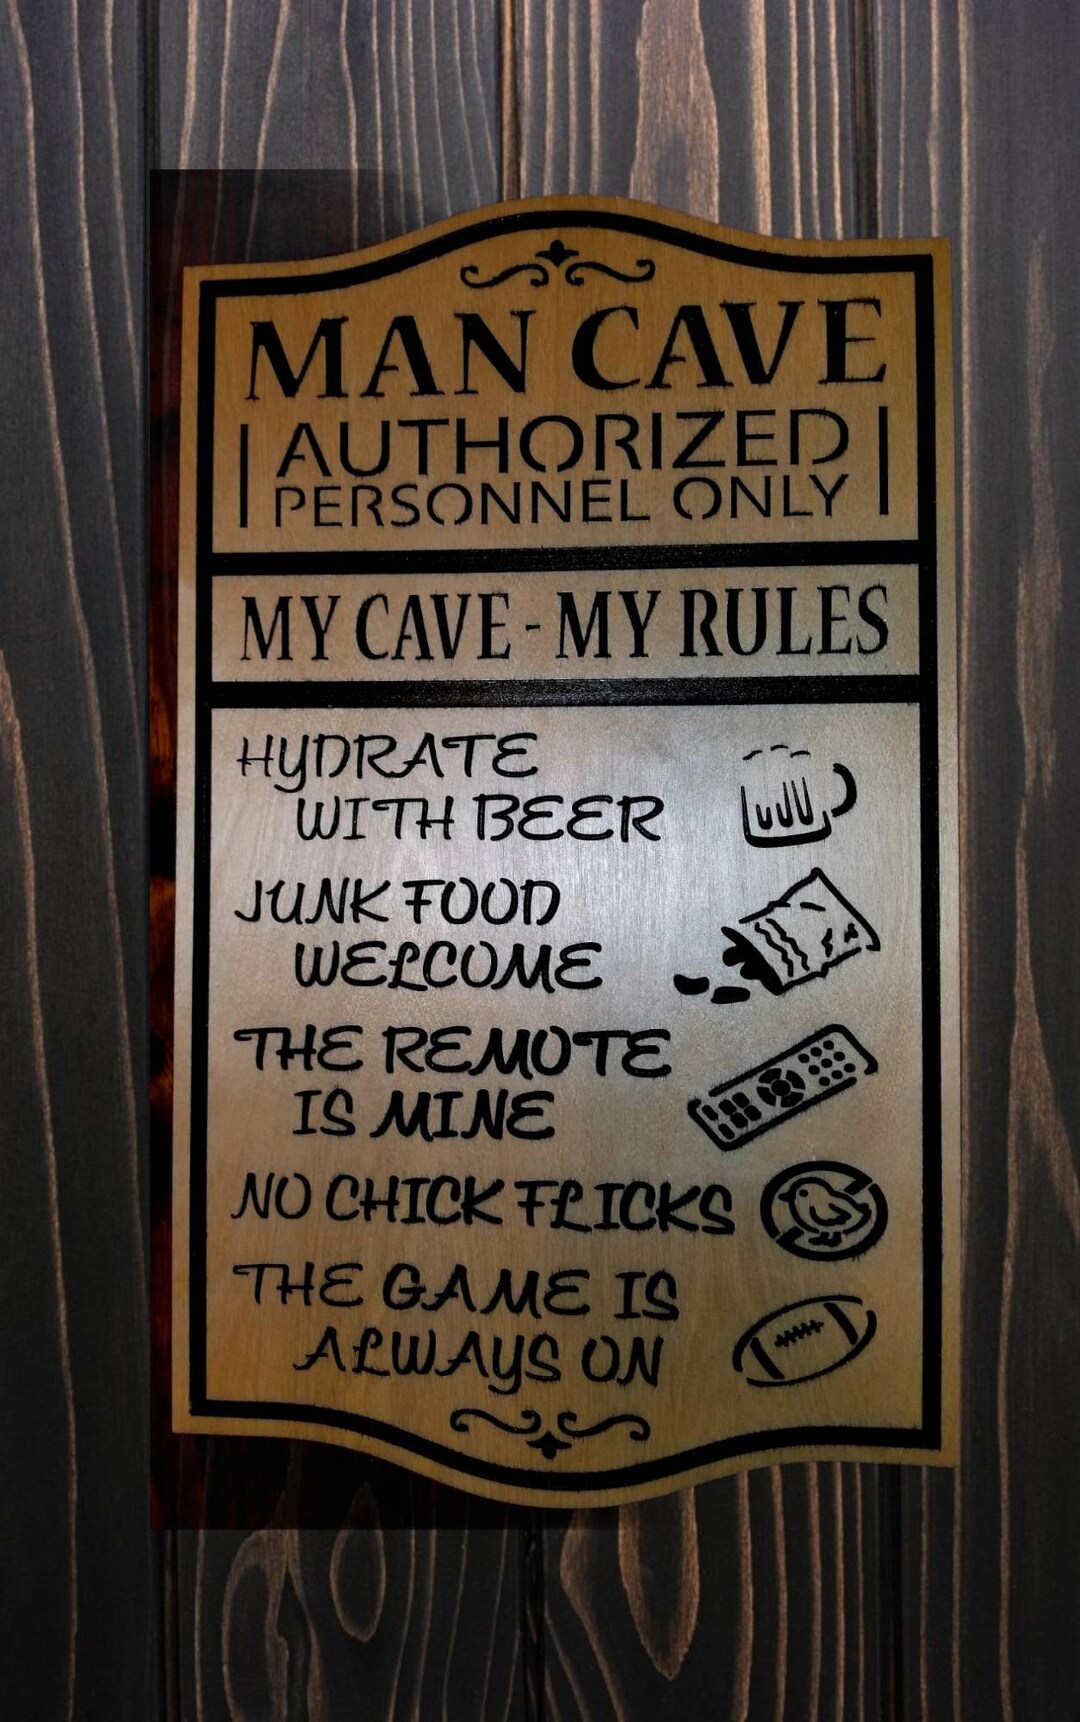 MAN CAVE
AUTHORIZED
PERSONNEL ONLY
MY CAVE - MY RULES
HYDRATE
WITH BEER
JUNK FOOD
WELCOME
THE REMOTE
IS MINE
NO CHICK FLICKS
THE GAME IS
ALWAYS ON